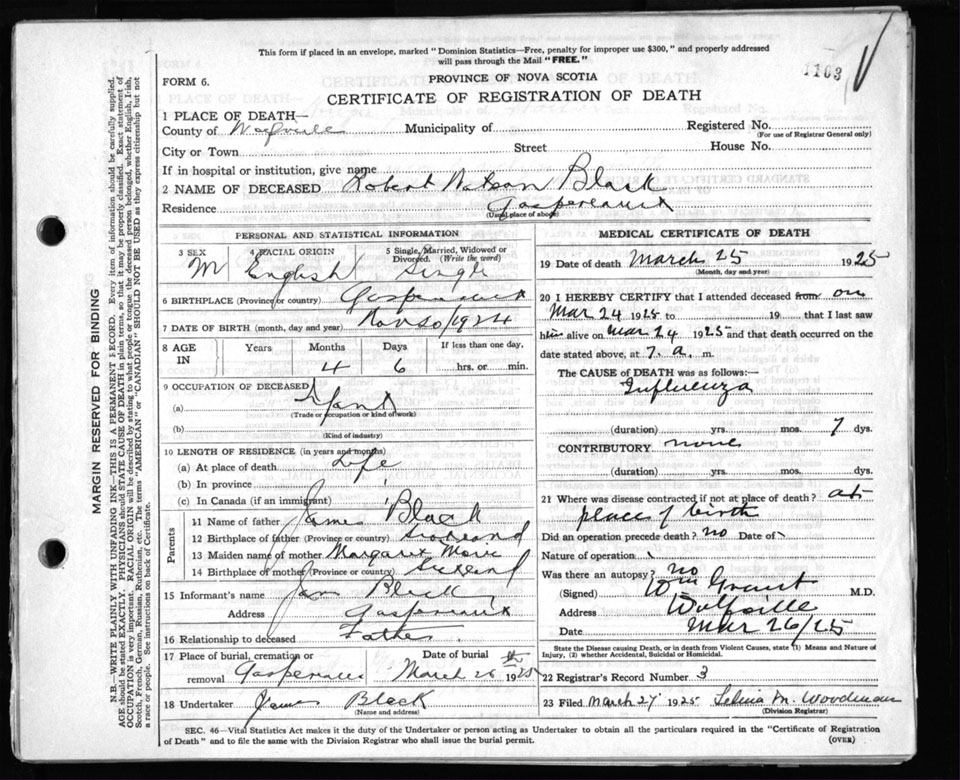 This form if placed in an envelope, marked "Dominion Statistics—Free, penalty for improper use $300," and properly addressed
will pass through the Mail "FREE."
1103
FORM 6.
PROVINCE OF NOVA SCOTIA
CERTIFICATE OF REGISTRATION OF DEATH
1 PLACE OF DEATH—
County of Municipality of Registered No.
(For use of Registrar General only)
City or Town Street House No.
If in hospital or institution, give name
2 NAME OF DECEASED Robert Watson Black
Residence Gaspereaux
(Usual place of abode)
PERSONAL AND STATISTICAL INFORMATION
3 SEX M
4 RACIAL ORIGIN English
5 Single, Married, Widowed or Divorced. (Write the word) Single
6 BIRTHPLACE (Province or country) Gaspereaux
7 DATE OF BIRTH (month, day and year) /1924
8 AGE IN Years Months Days If less than one day,
4 6 hrs. or min.
9 OCCUPATION OF DECEASED
(a) Infant
(Trade or occupation or kind of work)
(b)
(Kind of industry)
10 LENGTH OF RESIDENCE (in years and months)
(a) At place of death Life
(b) In province
(c) In Canada (if an immigrant)
Parents
11 Name of father James Black
12 Birthplace of father (Province or country) Scotland
13 Maiden name of mother Margaret
14 Birthplace of mother (Province or country)
15 Informant's name Jas Black
Address Gaspereaux
16 Relationship to deceased Father
17 Place of burial, cremation or removal Gaspereaux
Date of burial March 26 1925
18 Undertaker James Black
(Name and address)
MEDICAL CERTIFICATE OF DEATH
19 Date of death March 25 1925
(Month, day and year)
20 I HEREBY CERTIFY that I attended deceased from on
Mar 24 1925 to 19 that I last saw
him alive on Mar 24 1925 and that death occurred on
date stated above, at 7. a. m.
The CAUSE of DEATH was as follows:—
Influenza
(duration) yrs. mos. 7 dys.
CONTRIBUTORY none
(duration) yrs. mos. dys.
21 Where was disease contracted if not at place of death? at
place of birth
Did an operation precede death? no Date of
Nature of operation
Was there an autopsy? no
(Signed) Wm Grant M.D.
Address Wolfville
Date Mar 26/25
State the Disease causing Death, or in death from Violent Causes, state (1) Means and Nature of
Injury, (2) whether Accidental, Suicidal or Homicidal.
22 Registrar's Record Number 3
23 Filed March 27 1925 M. Woodman
(Division Registrar)
SEC. 46—Vital Statistics Act makes it the duty of the Undertaker or person acting as Undertaker to obtain all the particulars required in the "Certificate of Registration
of Death" and to file the same with the Division Registrar who shall issue the burial permit.
(OVER)
MARGIN RESERVED FOR BINDING
N.B.—WRITE PLAINLY WITH UNFADING INK—THIS IS A PERMANENT RECORD. Every item of information should be carefully supplied.
AGE should be stated EXACTLY. PHYSICIANS should STATE CAUSE OF DEATH in plain terms, so that it may be properly classified. Exact statement of
OCCUPATION is very important. RACIAL ORIGIN will be described by stating to what people or tongue the deceased person belonged, whether English, Irish,
Scotch, French, German, Russian, Ruthenian, etc. The terms "AMERICAN" or "CANADIAN" SHOULD NOT BE USED as they express citizenship but not
a race or people. See instructions on back of Certificate.